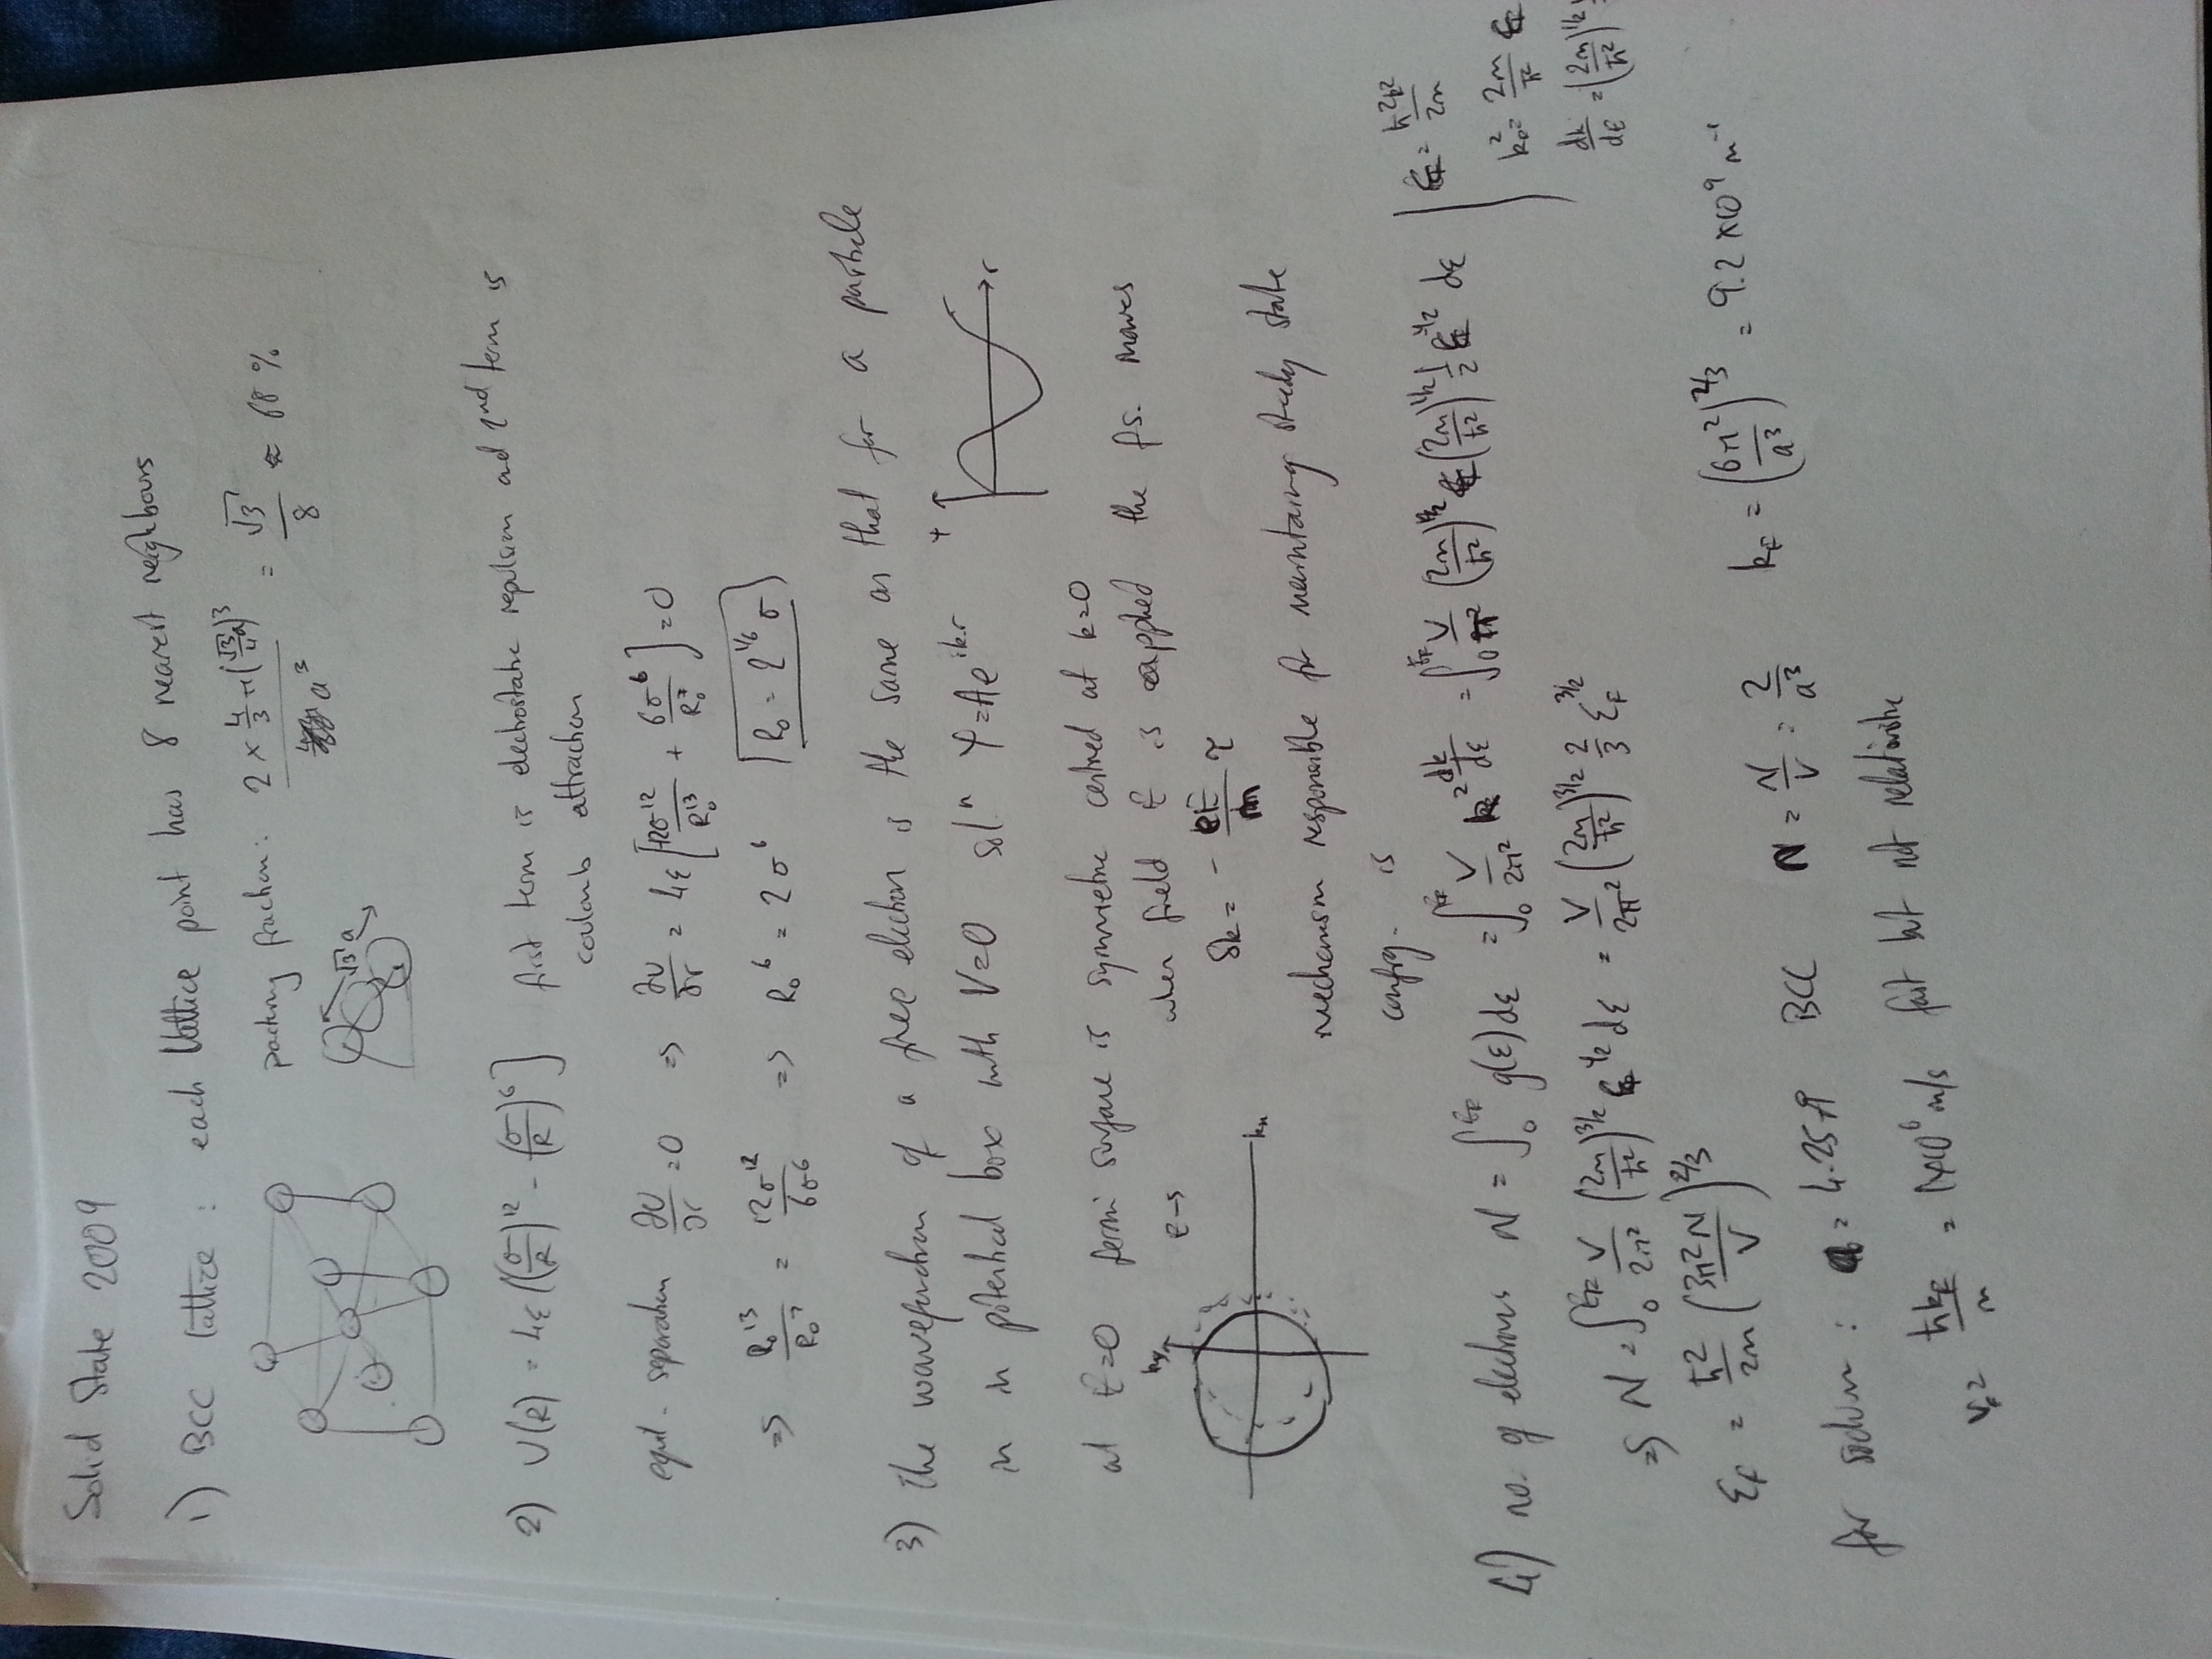 Solid State 2009
1) BCC lattice : each lattice point has 8 nearest neighbours
packing fraction: 2 × 4/3 π(√3/4 a)^3 / a^3 = √3/8 ≈ 68 %
√3 a
2) U(R) = 4ε[(σ/R)^12 - (σ/R)^6] first term is electrostatic repulsion and 2nd term is
coulomb attraction
equil. separation ∂U/∂r = 0 => ∂U/∂r = 4ε[-12σ^12/R₀^13 + 6σ^6/R₀^7] = 0
=> R₀^13/R₀^7 = 12σ^12/6σ^6 => R₀^6 = 2σ^6 R₀ = 2^1/6 σ
3) The wavefunction of a free electron is the same as that for a particle
in in potential box with V=0 sol^n Ψ=Ae^ik.r Ψ r
at E=0 fermi surface is symmetric centred at k=0
when field E is applied the f.s. moves
ky E→ kx
δk = - eE/ħ τ
mechanism responsible for maintaining steady state
config. is
4) no. of electrons N = ∫₀^εF g(ε)dε = ∫₀^εF V/2π² k² dk/dε = ∫₀^εF V/π² (2m/ħ²) ε (2m/ħ²)^1/2 1/2 ε^-1/2 dε
ε = ħ²k²/2m
k_F² = 2m/ħ² ε
dk/dε = (2m/ħ²)^1/2
=> N = ∫₀^εF V/2π² (2m/ħ²)^3/2 ε^1/2 dε = V/2π² (2m/ħ²)^3/2 2/3 ε_F^3/2
ε_F = ħ²/2m (3π²N/V)^2/3
for sodium : a = 4.25Å BCC n = N/V = 2/a³ k_F = (6π²/a³)^2/3 = 9.2 ×10^9 m^-1
v_F = ħk_F/m = 1×10^6 m/s fast but not relativistic